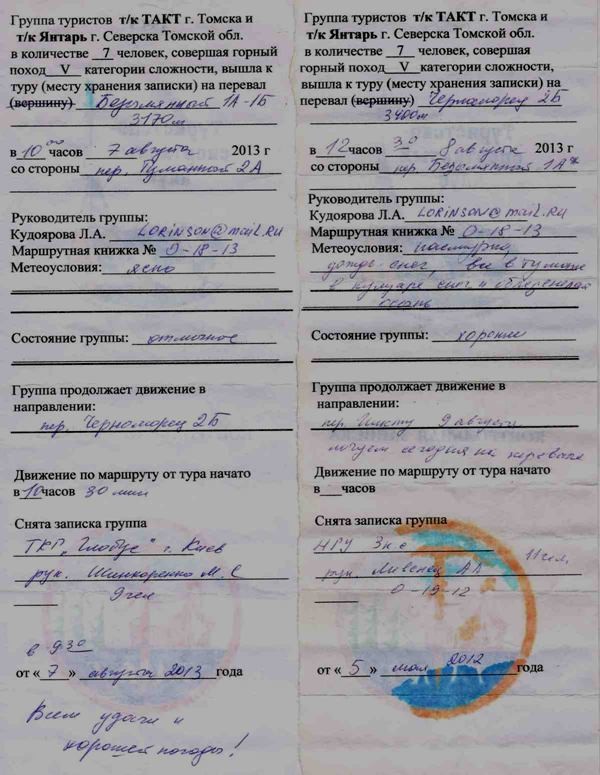 Группа туристов т/к ТАКТ г. Томска и
т/к Янтарь г. Северска Томской обл.
в количестве 7 человек, совершая горный
поход V категории сложности, вышла к
туру (месту хранения записки) на перевал
(вершину) Безымянной 1А-1Б
3170м
в 10 00 часов 7 августа 2013 г
со стороны пер. Туманной 2А
Руководитель группы:
Кудоярова Л.А. LORINSON@mail.RU
Маршрутная книжка № 0-18-13
Метеоусловия: ясно
Состояние группы: отличное
Группа продолжает движение в
направлении:
пер. Черноморец 2Б
Движение по маршруту от тура начато
в 10 часов 30 мин
Снята записка группа
ТКГ "Глобус" г. Киев
рук. Шинкоренко М. С
9 чел
в 9 30
от « 7 » августа 2013 года
Всем удачи и
хорошей погоды!
Группа туристов т/к ТАКТ г. Томска и
т/к Янтарь г. Северска Томской обл.
в количестве 7 человек, совершая
горный поход V категории сложности,
вышла к туру (месту хранения записки) на
перевал (вершину) Черноморец 2Б
3400м
в 12 часов 30 8 августа 2013 г
со стороны пер. Безымянной 1А*
Руководитель группы:
Кудоярова Л.А. LORINSON@mail.RU
Маршрутная книжка № 0-18-13
Метеоусловия: пасмурно
дождь снег, все в тумане
в кулуаре снег и обледенелая
осыпь
Состояние группы: хорошее
Группа продолжает движение в
направлении:
пер. 9 августа
ночуем сегодня на перевале
Движение по маршруту от тура начато
в часов
Снята записка группа
НГУ 3 к.с 11 чел
рук. Ливенец АА
0-19-12
от « 5 » мая 2012 года